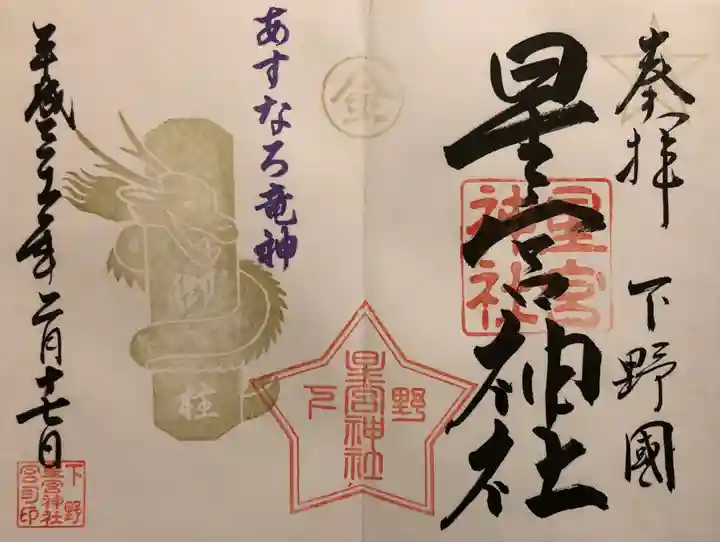 奉拝
下野國
星宮神社
星宮
神社
金
あすなろ竜神
御柱
下野
星宮神社
平成
年二月十七日
下野
星宮神社
宮司印